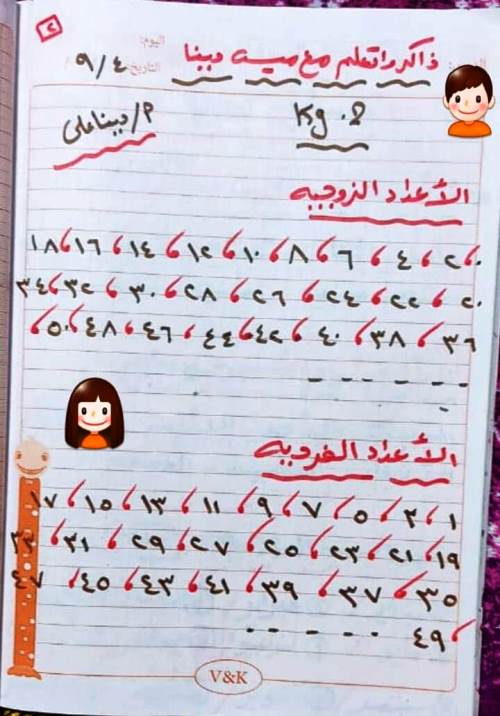 ٢
اليوم:
ذاكر واتعلم مع ميسه دينا
التاريخ: ٩/٤
Kg.2
م/دينا على
الأعداد الزوجيه
٠، ٢، ٤، ٦، ٨، ١٠، ١٢، ١٤، ١٦، ١٨
٢٠، ٢٢، ٢٤، ٢٦، ٢٨، ٣٠، ٣٢، ٣٤
٣٦، ٣٨، ٤٠، ٤٢، ٤٤، ٤٦، ٤٨، ٥٠،
الأعداد الفرديه
١، ٣، ٥، ٧، ٩، ١١، ١٣، ١٥، ١٧
١٩، ٢١، ٢٣، ٢٥، ٢٧، ٢٩، ٣١، ٣٣
٣٥، ٣٧، ٣٩، ٤١، ٤٣، ٤٥، ٤٧
، ٤٩
V&K